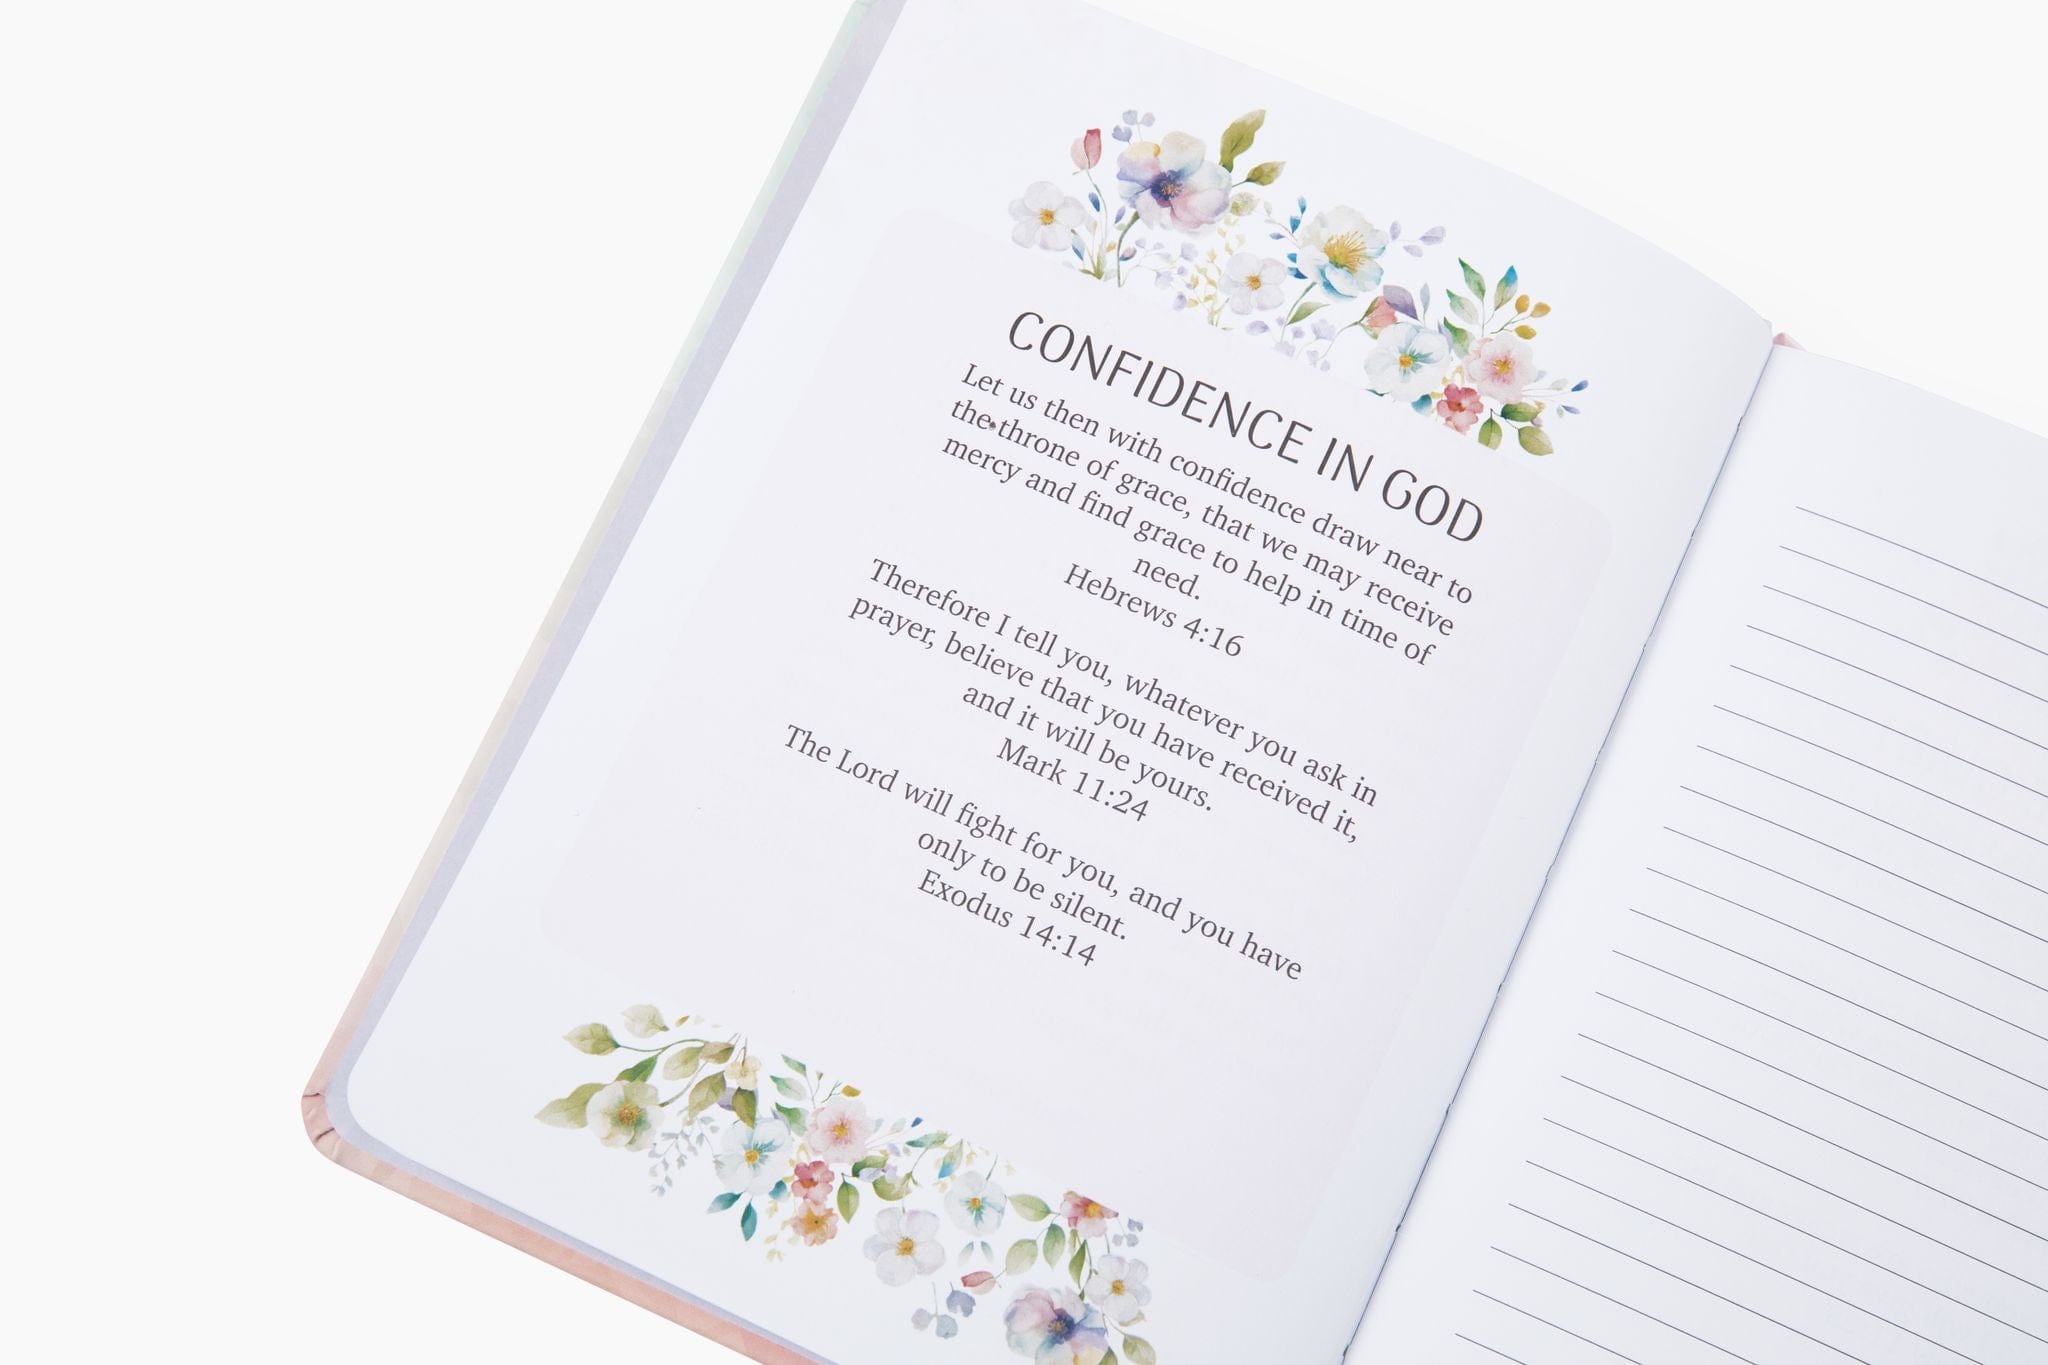 CONFIDENCE IN GOD
Let us then with confidence draw near to
the throne of grace, that we may receive
mercy and find grace to help in time of
need.
Hebrews 4:16
Therefore I tell you, whatever you ask in
prayer, believe that you have received it,
and it will be yours.
Mark 11:24
The Lord will fight for you, and you have
only to be silent.
Exodus 14:14